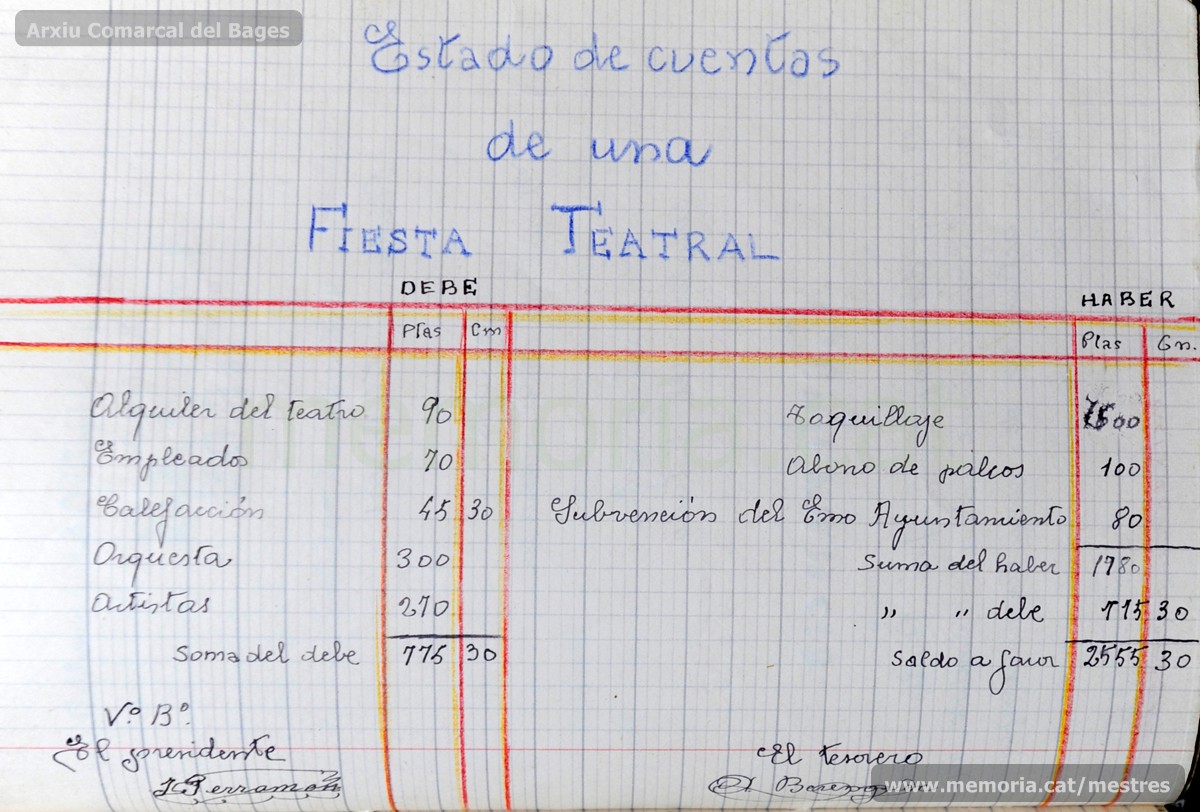 Arxiu Comarcal del Bages
Estado de cuentas
de una
FIESTA TEATRAL
DEBE
HABER
Ptas Cm
Ptas Cm.
Alquiler del teatro 90
Taquillaje 1600
Empleados 70
Abono de palcos 100
Calefacción 45 30
Subvención del Emo Ayuntamiento 80
Orquesta 300
Suma del haber 1780
Artistas 270
„ „ debe 775 30
Soma del debe 775 30
Saldo a favor 2555 30
V.º B.º
El presidente
El tesorero
www.memoria.cat/mestres